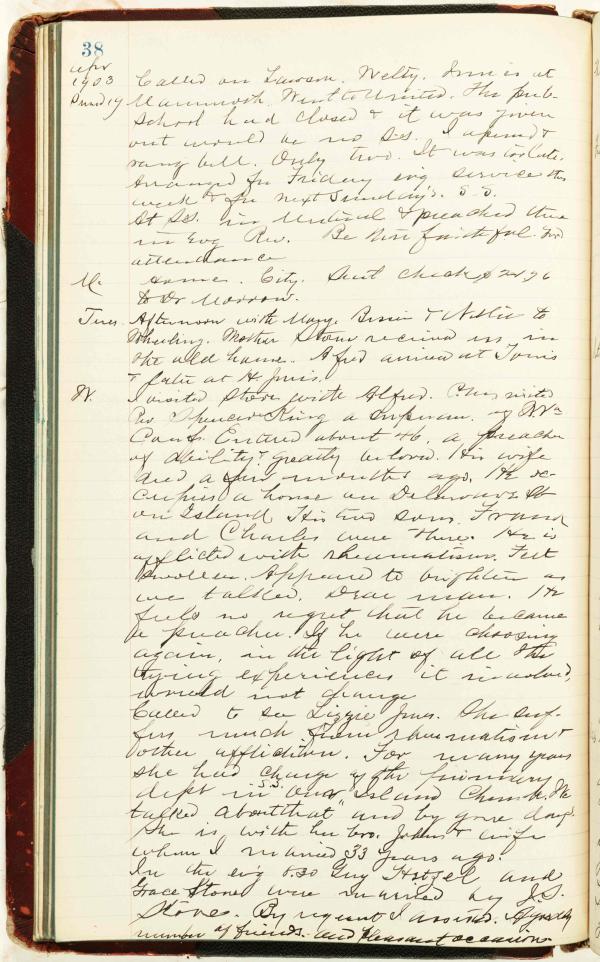 38
Apr
1903
Sund 19
Called on Lawson. Welty. Irwin is at
Mammoth. Went to United. The pub-
school had closed & it was given
out would be no S.S. I opened &
rang bell. Only two. It was too late.
Arranged for Friday evg service this
week & for next Sunday's S.S.
At S.S. in United & preached there
in evg Rev. Be thou faithful. Fair
attendance
M. Home. City. Sent check $
to Dr Morrow.
Tues. Afternoon with Mary, Bessie & Nellie to
Wheeling. Mother Stone received us in
the old home. Alfred arrived at
& later at
W. I visited Store with Alfred. P.M. visited
Rev Spencer King a of W.Va
Conf. Entered about 46, a preacher
of ability & greatly beloved. His wife
died a few months ago. He oc-
cupies a house on Delaware St
on Island. His two sons, Frank
and Charles were there. He is
afflicted with rheumatism. Feet
swollen. Appeared to brighten as
we talked. Dear man. He
feels no regret that he became
a preacher. If he were choosing
again, in the light of all the
trying experiences it involved,
would not change
Called to see Lizzie Jones. She suf-
fers much from rheumatism &
other affliction. For many years
she had charge of the primary
dept in S.S. Our Island Church. We
talked about that and by gone days.
She is with her bro. John & wife
whom I married 33 years ago.
In the ev'g 8.30 Guy Hetzel and
Grace Stone were married by J.S.
Stone. By request I assisted. A goodly
number of friends and pleasant occasion.